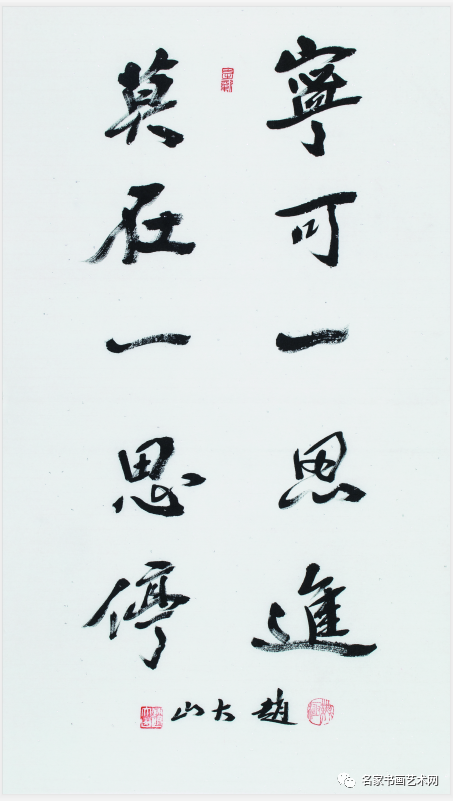 寧可一思進
莫在一思停
趙大山
名家书画艺术网